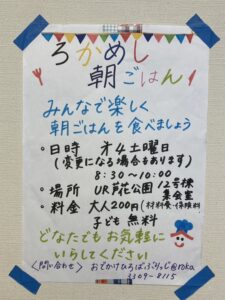 ろかめし
朝ごはん
みんなで楽しく
朝ごはんを食べましょう
・日時 第4土曜日
(変更になる場合もあります)
8:30~10:00
・場所 UR芦花公園 12号棟
集会室
・料金 大人200円(材料費・保険料)
子ども 無料
どなたでもお気軽に
いらしてください
〈問い合わせ〉 おでかけひろばぶりっじ@roka
3309-8115